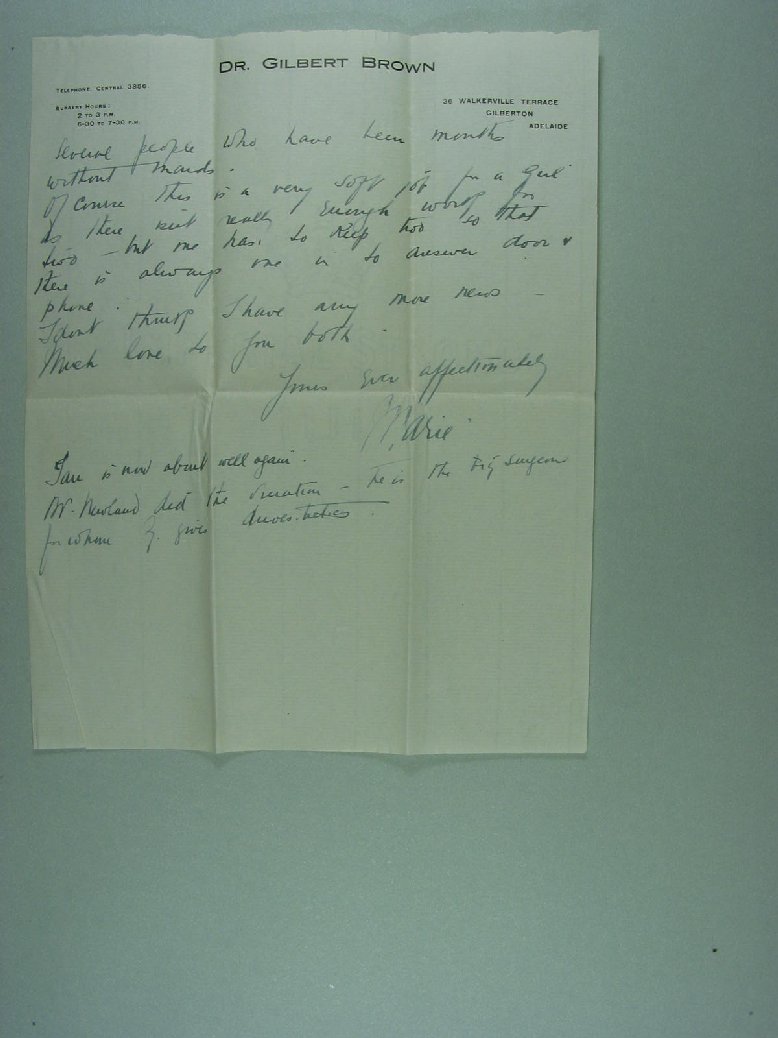 DR. GILBERT BROWN
TELEPHONE, CENTRAL 3866
SURGERY HOURS:
2 TO 3 P.M.
6-30 TO 7-30 P.M.
36 WALKERVILLE TERRACE
GILBERTON
ADELAIDE
several people who have been months
without maids.
Of course this is a very soft job for a girl
as there isnt really enough work for
two - but one has to keep two so that
there is always one in to answer door &
phone.
I dont think I have any more news -
Much love to you both -
Yours ever affectionately
Marie
Ian is now about well again.
Dr. Newland did the operation - he is the big surgeon
for whom G. gives anaesthetics.